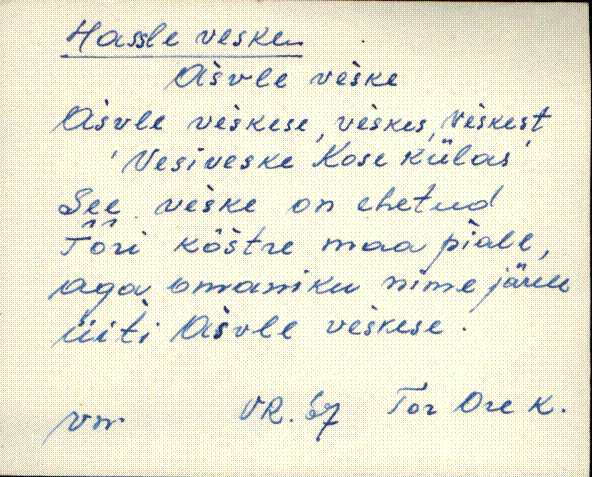 Hassle veske
Aśvle vèske
Aśvle vèskese, vèskes, vèskest
'Vesiveske Kose külas'
See vèske on ehetud
Tõri kõstre maa pìale,
aga omaniku nime järele
üiti Aśvle vèskese.
VR. 67 Tor Ore K.